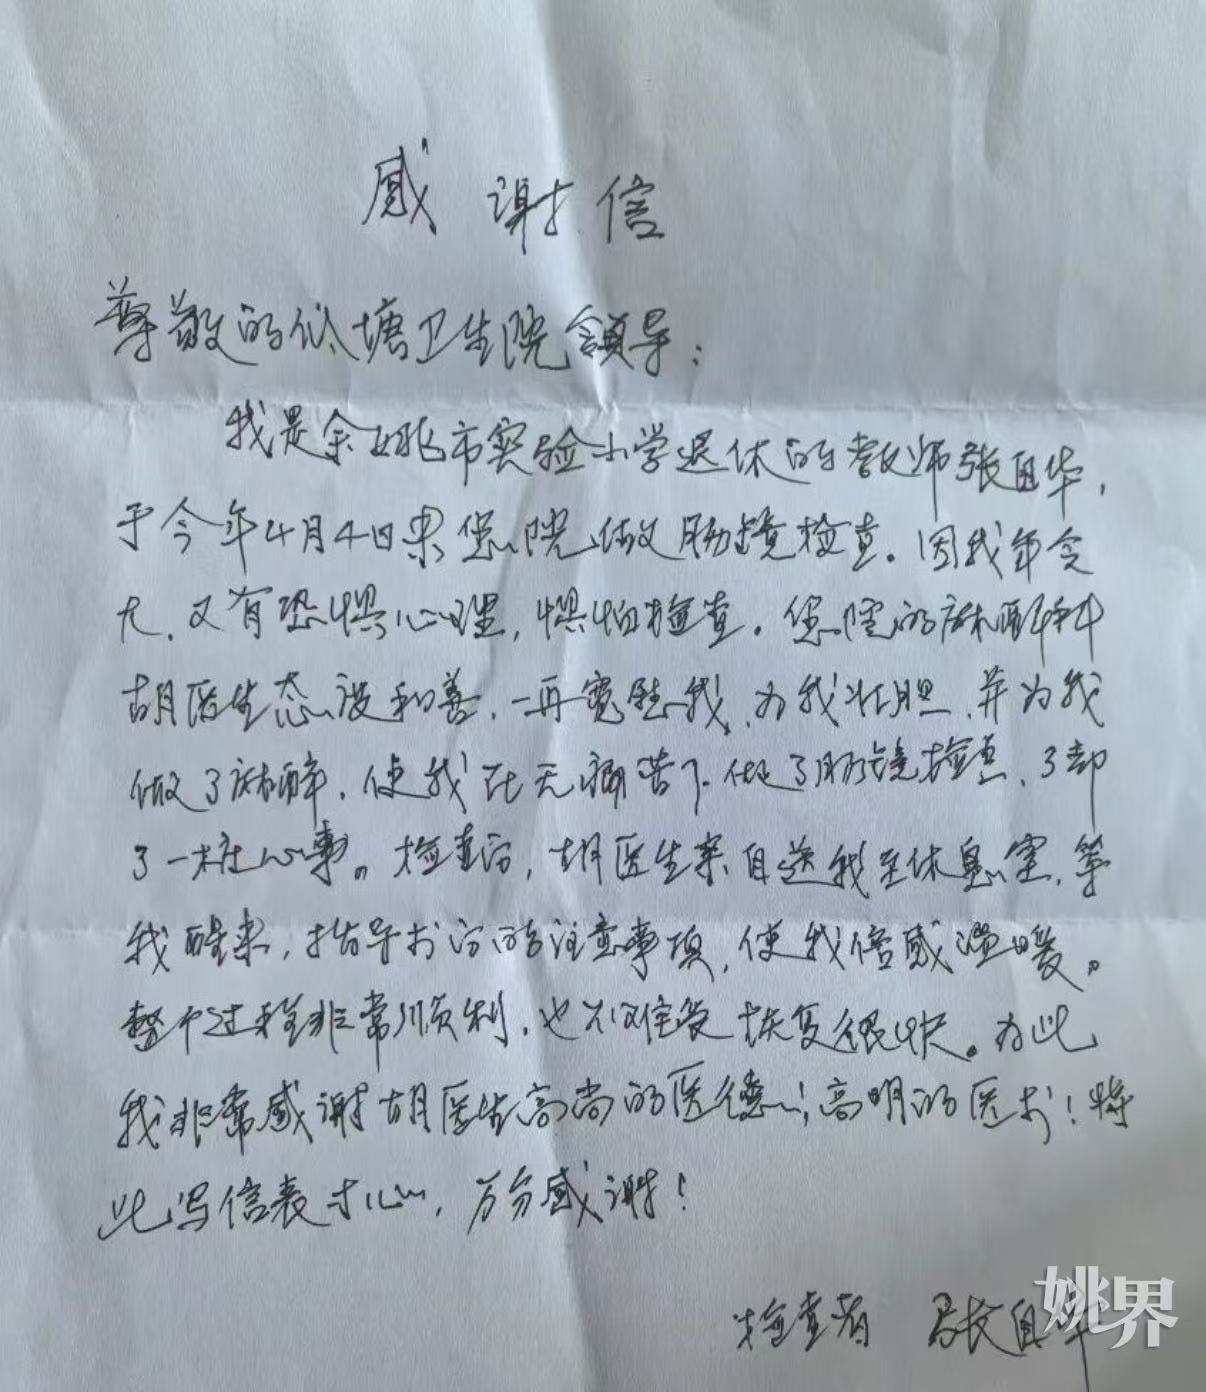 感谢信
尊敬的低塘卫生院领导：
我是余姚市实验小学退休的教师张自华，
于今年4月4日来您院做肠镜检查。因我年令
大，又有恐惧心理，惧怕检查。您院的麻醉科
胡医生态设和善，一再宽慰我，为我壮胆，并为我
做了麻醉，使我在无痛苦下做了肠镜检查，了却
了一桩心事。检查后，胡医生亲自送我至休息室，等
我醒来，指导术后的注意事项，使我倍感温暖。
整个过程非常顺利，也不难受恢复很快。为此
我非常感谢胡医生高尚的医德！高明的医术！特
此写信表寸心，万分感谢！
检查者 张自华
姚界